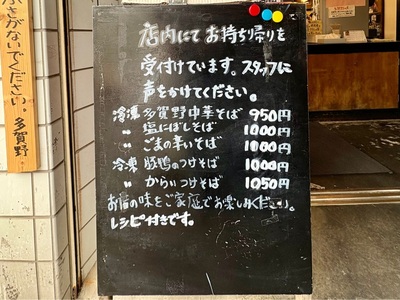 ふさがないでください。多賀野
店内にてお持ち帰りを
受付けています。スタッフに
声をかけてください。
冷凍 多賀野中華そば 950円
〃 塩にぼしそば 1000円
〃 ごまの辛いそば 1000円
冷凍 豚鴨のつけそば 1000円
〃 からいつけそば 1050円
お店の味をご家庭でお楽しみください。
レシピ付きです。